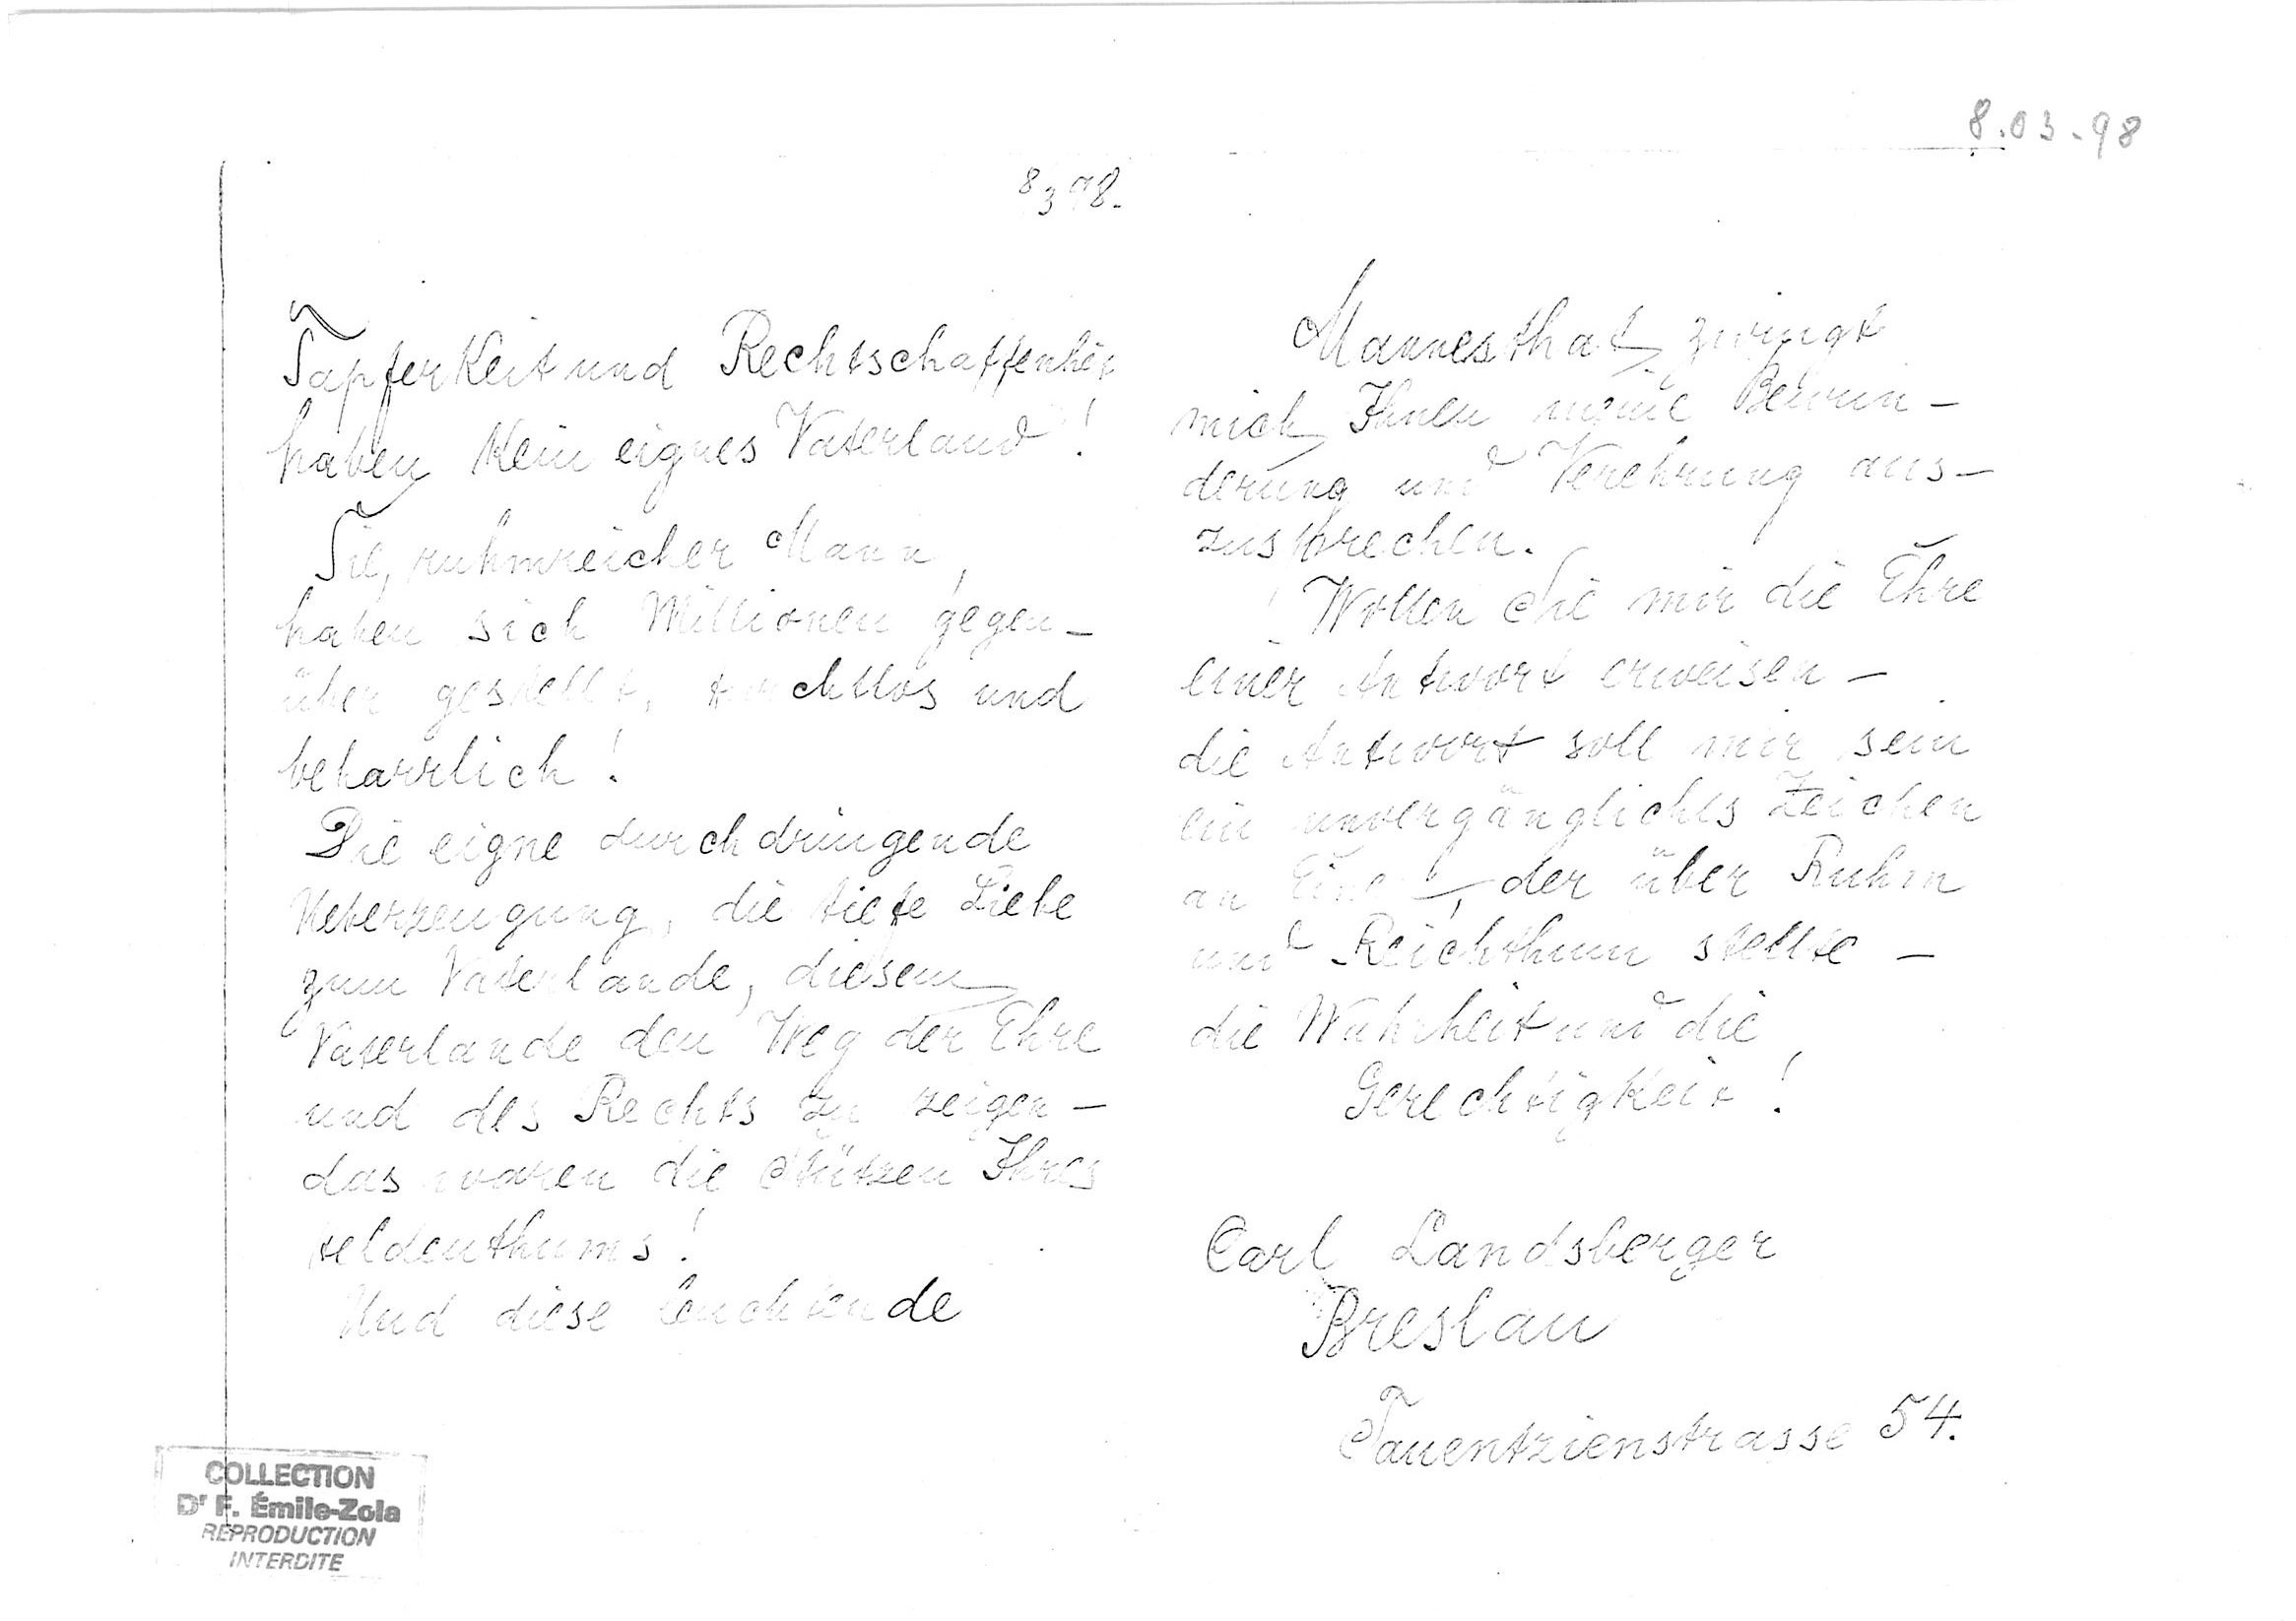 8.03-98
8 3 98.
Tapferkeit und Rechtschaffenheit
haben kein eignes Vaterland!
Sie, ruhmreicher Mann,
haben sich Millionen gegen-
über gestellt, furchtlos und
beharrlich!
Die eigne durchdringende
Ueberzeugung, die tiefe Liebe
zum Vaterlande, diesem
Vaterlande den Weg der Ehre
und des Rechts zu zeigen -
das waren die Stützen Ihres
Heldenthums!
Und diese leuchtende
Mannesthat zwingt
mich, Ihnen meine Bewun-
derung und Verehrung aus-
zusprechen.
Wollen Sie mir die Ehre
einer Antwort erweisen -
die Antwort soll mir sein
ein unvergänglichs Zeichen
an, der über Ruhm
und Reichthum stellte -
die Wahrheit und die
Gerechtigkeit!
Carl Landsberger
Breslau
Tauentzienstrasse 54.
COLLECTION
Dr F. Émile-Zola
REPRODUCTION
INTERDITE